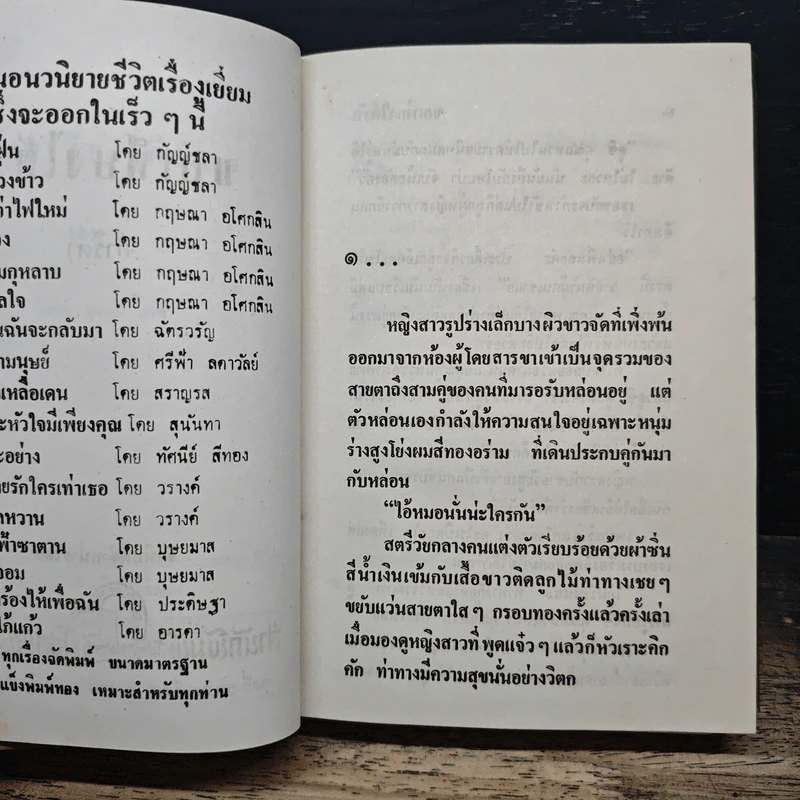 นอนวนิยายชีวิตเรื่องเยี่ยม
ซึ่งจะออกในเร็ว ๆ นี้
ฝุ่น โดย กัญญ์ชลา
วงข้าว โดย กัญญ์ชลา
ก่าไฟใหม่ โดย กฤษณา อโศกสิน
อง โดย กฤษณา อโศกสิน
มกุหลาบ โดย กฤษณา อโศกสิน
ลใจ โดย กฤษณา อโศกสิน
นฉันจะกลับมา โดย ฉัตรวรัญ
ามนุษย์ โดย ศรีฟ้า ลดาวัลย์
เหลือเดน โดย สราญรส
ะหัวใจมีเพียงคุณ โดย สุนันทา
ะอย่าง โดย ทัศนีย์ สีทอง
ยรักใครเท่าเธอ โดย วรางค์
ดหวาน โดย วรางค์
ฟ้าซาตาน โดย บุษยมาส
ออม โดย บุษยมาส
ร้องไห้เพื่อฉัน โดย ประดิษฐา
โก้แก้ว โดย อารดา
ทุกเรื่องจัดพิมพ์ ขนาดมาตรฐาน
แข็งพิมพ์ทอง เหมาะสำหรับทุกท่าน
๑ . . .
หญิงสาวรูปร่างเล็กบางผิวขาวจัดที่เพิ่งพ้น
ออกมาจากห้องผู้โดยสารขาเข้าเป็นจุดรวมของ
สายตาถึงสามคู่ของคนที่มารอรับหล่อนอยู่ แต่
ตัวหล่อนเองกำลังให้ความสนใจอยู่เฉพาะหนุ่ม
ร่างสูงโย่งผมสีทองอร่าม ที่เดินประกบคู่กันมา
กับหล่อน
“ไอ้หมอนั่นน่ะใครกัน”
สตรีวัยกลางคนแต่งตัวเรียบร้อยด้วยผ้าซิ่น
สีน้ำเงินเข้มกับเสื้อขาวติดลูกไม้ท่าทางเชย ๆ
ขยับแว่นสายตาใส ๆ กรอบทองครั้งแล้วครั้งเล่า
เมื่อมองดูหญิงสาวที่ พูดแจ๋ว ๆ แล้วก็หัวเราะคิก
คัก ท่าทางมีความสุขนั่นอย่างวิตก